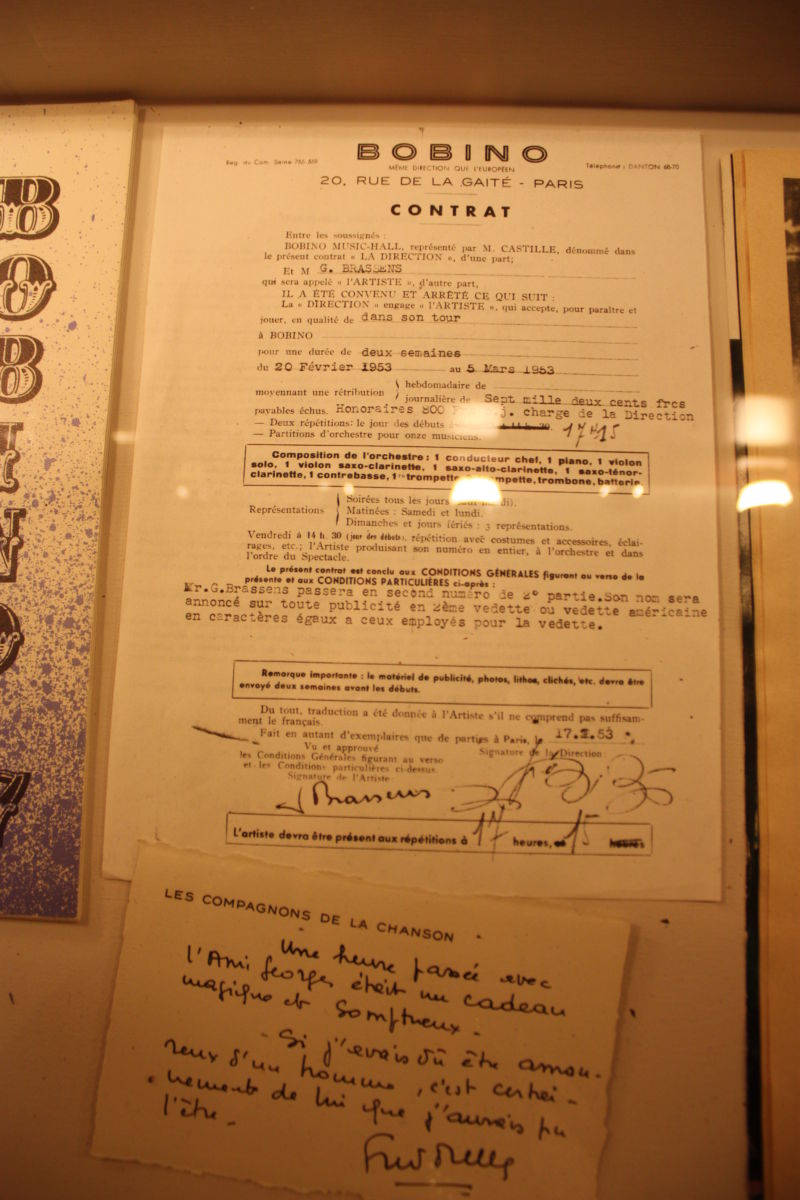 BOBINO
Reg. du Com. Seine
MÊME DIRECTION QUE L'EUROPÉEN
Téléphone : DANTON 68-70
20, RUE DE LA GAITÉ - PARIS
CONTRAT
Entre les soussignés :
BOBINO MUSIC-HALL, représenté par M. CASTILLE, dénommé dans
le présent contrat « LA DIRECTION », d'une part;
Et M G. BRASSENS
qui sera appelé « l'ARTISTE », d'autre part,
IL A ÉTÉ CONVENU ET ARRÊTÉ CE QUI SUIT :
La « DIRECTION » engage « l'ARTISTE », qui accepte, pour paraître et
jouer, en qualité de dans son tour
à BOBINO
pour une durée de deux semaines
du 20 Février 1953 au 5 Mars 1953
moyennant une rétribution
hebdomadaire de
journalière de Sept mille deux cents frcs
payables échus. Honoraires 800 j. charge de la Direction
— Deux répétitions: le jour des débuts 17 15
— Partitions d'orchestre pour onze musiciens.
Composition de l'orchestre : 1 conducteur chef, 1 piano, 1 violon
solo, 1 violon saxo-clarinette, 1 saxo-alto-clarinette, 1 saxo-ténor-
clarinette, 1 contrebasse, 1re trompette, trompette, trombone, batterie.
Représentations
Soirées tous les jours
Matinées : Samedi et lundi.
Dimanches et jours fériés : 3 représentations.
Vendredi à 14 h. 30 (jour des débuts), répétition avec costumes et accessoires, éclai-
rages, etc.; l'Artiste produisant son numéro en entier, à l'orchestre et dans
l'ordre du Spectacle.
Le présent contrat est conclu aux CONDITIONS GÉNÉRALES figurant au verso de la
présente et aux CONDITIONS PARTICULIÈRES ci-après :
Mr.G.Brassens passera en second numéro de 2e partie.Son nom sera
annoncé sur toute publicité en 2ème vedette ou vedette américaine
en caractères égaux a ceux employés pour la vedette.
Remarque importante : le matériel de publicité, photos, lithos, clichés, etc. devra être
envoyé deux semaines avant les débuts.
Du tout, traduction a été donnée à l'Artiste s'il ne comprend pas suffisam-
ment le français.
Fait en autant d'exemplaires que de parties à Paris, le 17.2.53
Vu et approuvé
les Conditions Générales figurant au verso
et les Conditions particulières ci-dessus.
Signature de l'Artiste:
Signature de la Direction
G Brassens
L'artiste devra être présent aux répétitions à 17 heures, 15 heures
LES COMPAGNONS DE LA CHANSON
Une heure passée avec
l'Ami Georges était un cadeau
magique et somptueux.
Si j'avais dû être amou-
reux d'un homme, c'est certai-
nement de lui que j'aurais pu
l'être.
Fred Mella
BOBINO
7